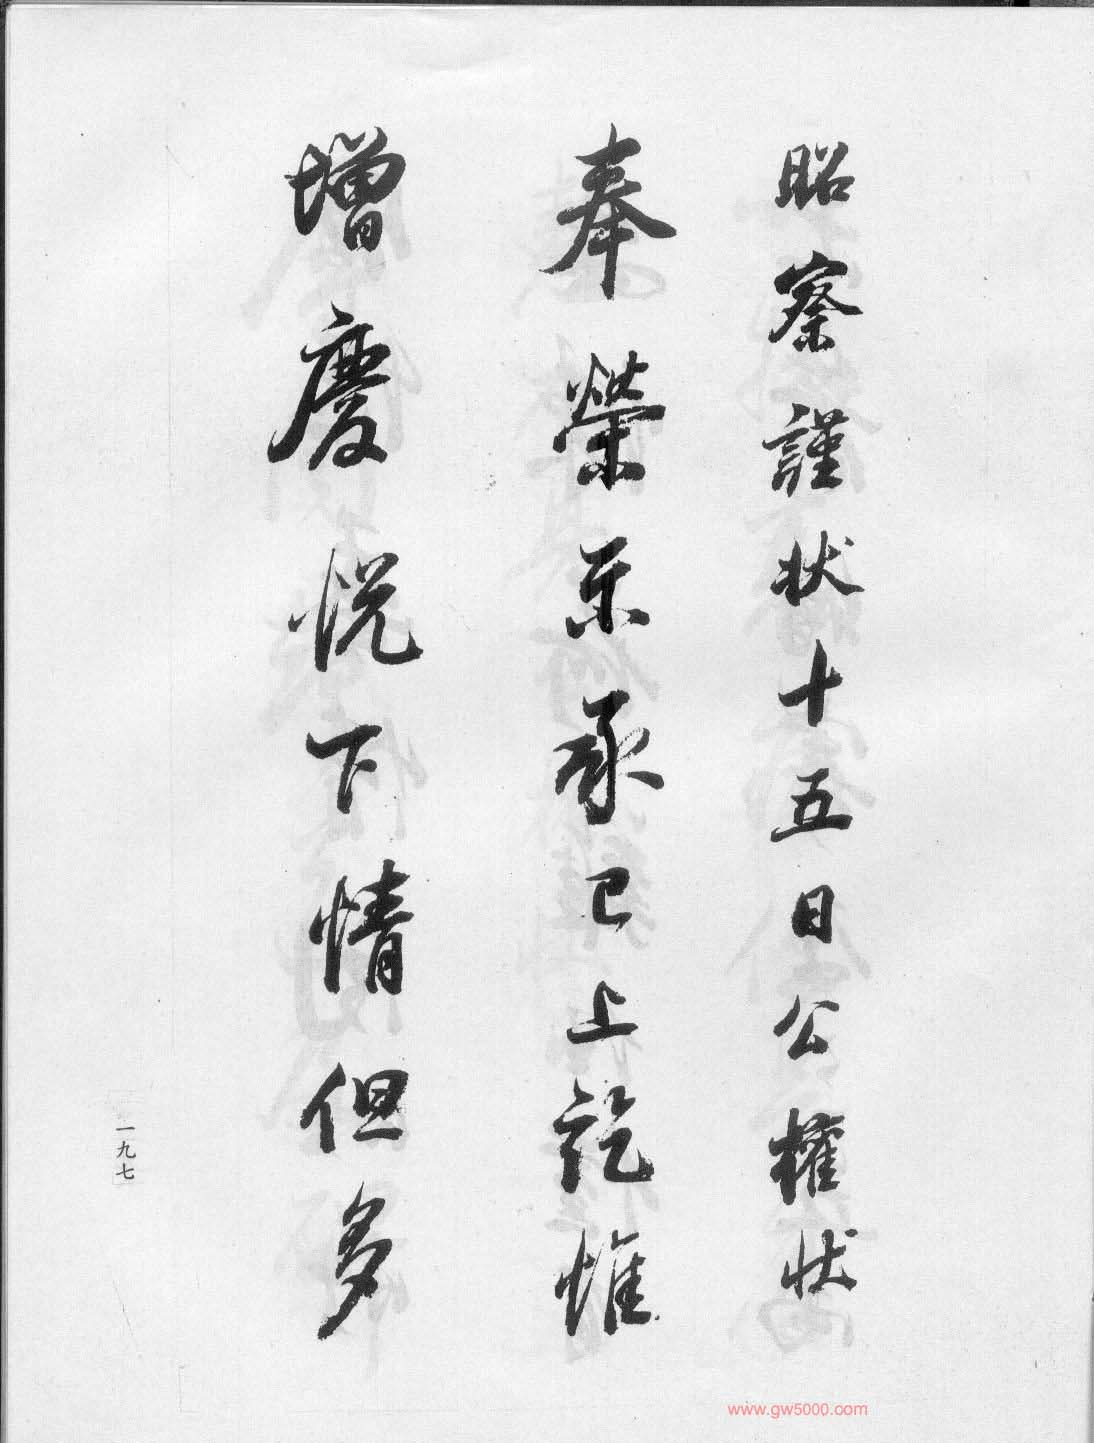 昭察謹状十五日公權状
奉榮示承已上訖惟
增慶悦下情但多
一九七
www.gw5000.com